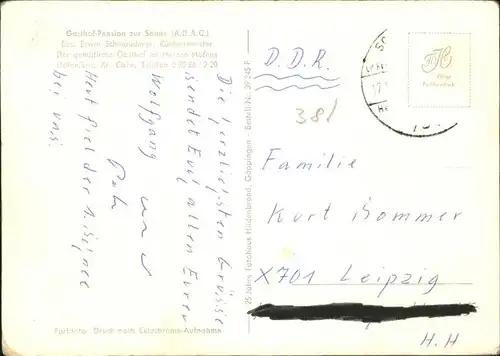 Gasthof-Pension zur Sonne (A.D.A.C.)
Bes. Erwin Schnaudorp, Küchenmeister
Der gemütliche Gasthof im Herzen Höfens
Höfen/Enz, Kr. Calw, Telefon
Die herzlichsten Grüsse
sendet Euch allen Eurer
Wolfgang und
Heut fiel der 1. Schnee
bei uns.
Farbfoto: Druck nach Colorchrome-Aufnahme
25 Jahre Fotohaus Hildenbrand, Göppingen - Bestell-Nr. 39 245 F
D.D.R.
381
Familie
Kurt Bommer
X701 Leipzig
H.H